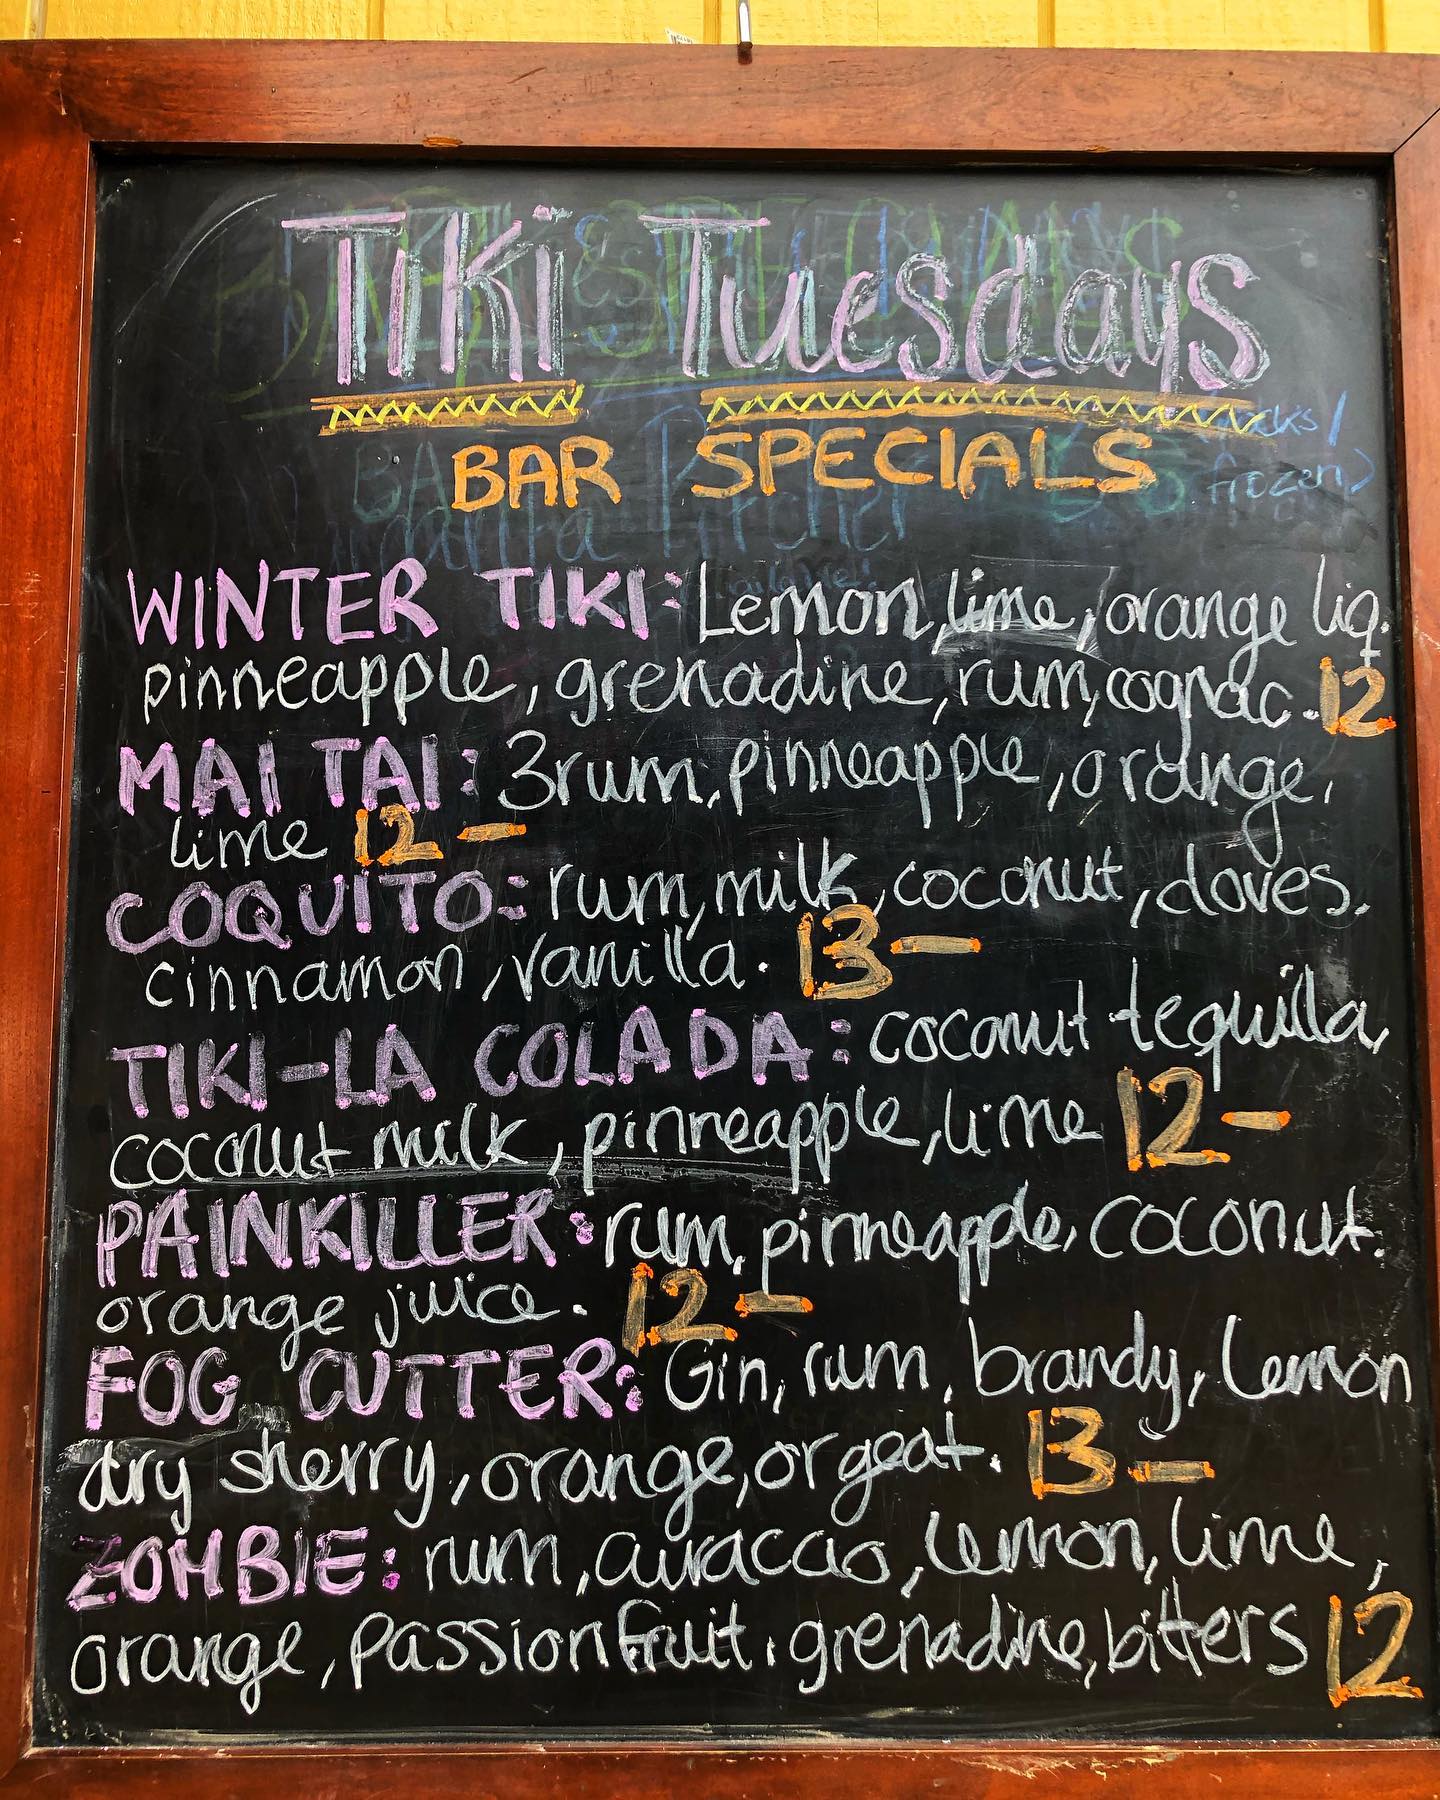 Tiki Tuesdays
BAR SPECIALS
frozen)
WINTER TIKI: Lemon, lime, orange liq.
pinneapple, grenadine, rum, cognac. 12
MAI TAI: 3rum, pinneapple, orange,
lime 12-
COQUITO: rum, milk, coconut, cloves.
cinnamon, vanilla. 13-
TIKI-LA COLADA: coconut tequilla,
coconut milk, pinneapple, lime 12-
PAINKILLER: rum, pinneapple, coconut.
orange juice. 12-
FOG CUTTER: Gin, rum, brandy, lemon
dry sherry, orange, orgeat. 13-
ZOMBIE: rum, curaccao, lemon, lime,
orange, passionfruit, grenadine, bitters 12